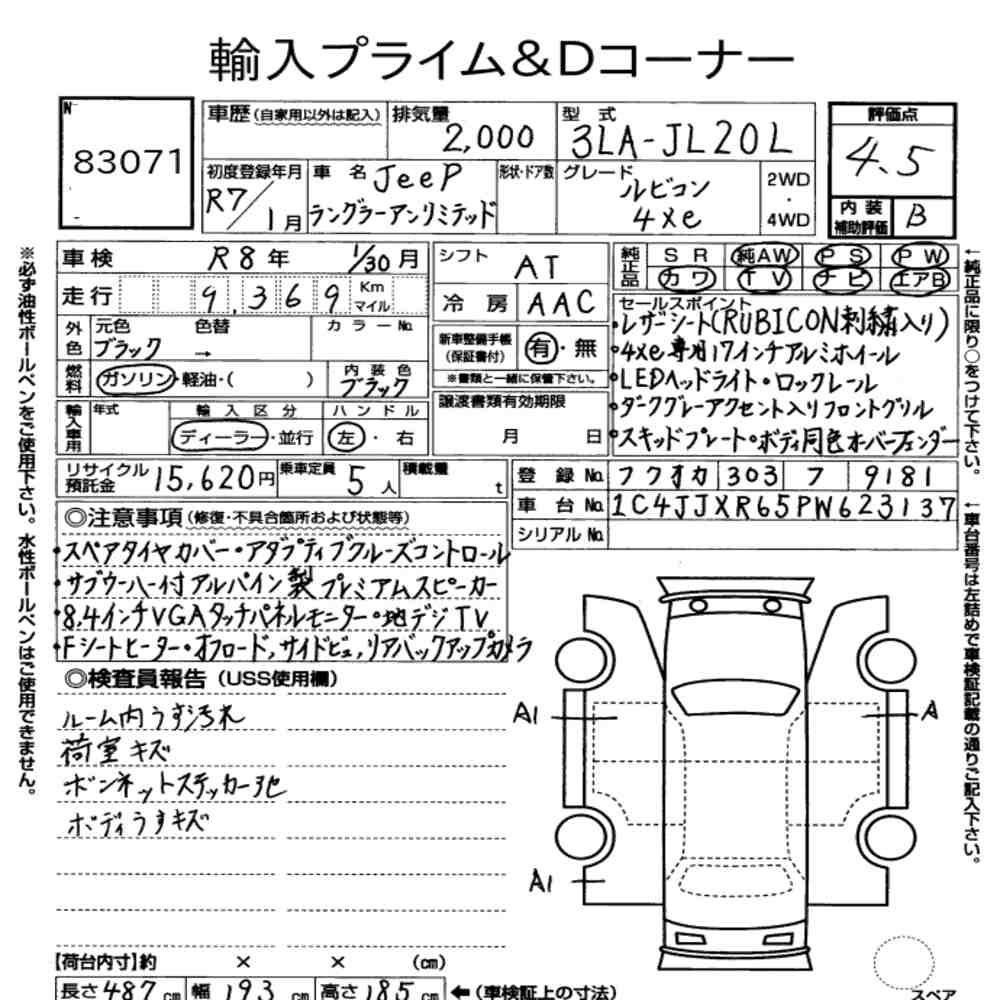 輸入プライム&Dコーナー
N
83071
車歴(自家用以外は記入)
排気量
2,000
型式
3LA-JL20L
評価点
4.5
内装補助評価
B
初度登録年月
R7/1月
車名
JeeP
ラングラーアンリミテッド
形状・ドア数
グレード
ルビコン
4xe
2WD
・
4WD
車検
R8年 1/30月
走行
9,369
Km
マイル
シフト
AT
冷房
AAC
純正品
SR 純AW PS PW
カワ TV ナビ エアB
外色
元色
色替
ブラック →
カラーNo.
新車整備手帳
(保証書付)
有・無
※書類と一緒に保管下さい。
燃料
ガソリン・軽油・( )
内装色
ブラック
輸入車用
年式
輸入区分
ディーラー・並行
ハンドル
左・右
譲渡書類有効期限
月 日
セールスポイント
・レザーシート(RUBICON刺繍入り)
・4xe専用17インチアルミホイール
・LEDヘッドライト・ロックレール
・ダークグレーアクセント入りフロントグリル
・スキッドプレート・ボディ同色オーバーフェンダー
リサイクル預託金
15,620円
乗車定員
5人
積載量
t
登録No.
フクオカ 303 フ 9181
車台No.
1C4JJXR65PW623137
シリアルNo.
◎注意事項(修復・不具合箇所および状態等)
・スペアタイヤカバー・アダプティブクルーズコントロール
・サブウーハー付アルパイン製プレミアムスピーカー
・8.4インチVGAタッチパネルモニター・地デジTV
・Fシートヒーター・オフロード,サイドビュ,リアバックアップカメラ
◎検査員報告(USS使用欄)
ルーム内うす汚れ
荷室キズ
ボンネットステッカー他
ボディうすキズ
A1
A
A1
【荷台内寸】約 × × (cm)
長さ487cm 幅193cm 高さ185cm ←(車検証上の寸法)
スペア
※必ず油性ボールペンをご使用下さい。水性ボールペンはご使用できません。
←純正品に限り○をつけて下さい。
←車台番号は左詰めで車検証記載の通りご記入下さい。